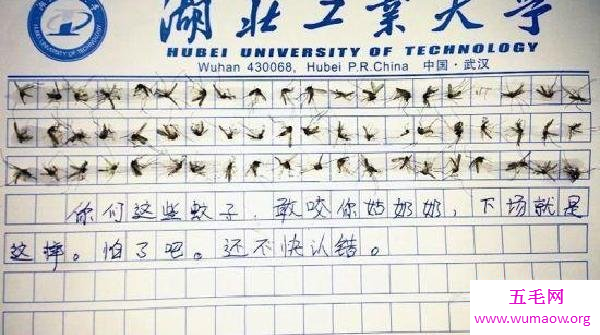 湖北工业大学
HUBEI UNIVERSITY OF TECHNOLOGY
Wuhan 430068, Hubei P.R.China 中国·武汉
你们这些蚊子，敢咬你姑奶奶，下场就是
这样。怕了吧。还不快认错。
五毛网
www.wumaow.org